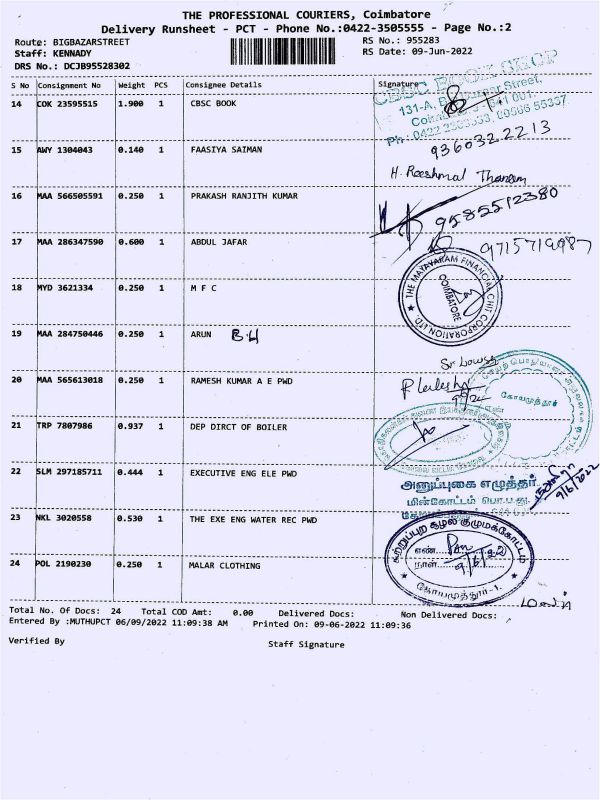 THE PROFESSIONAL COURIERS, Coimbatore
Delivery Runsheet - PCT - Phone No.:0422-3505555 - Page No.:2
Route: BIGBAZARSTREET
Staff: KENNADY
DRS No.: DCJB95528302
RS No.: 955283
RS Date: 09-Jun-2022
S No Consignment No Weight PCS Consignee Details Signature
14 COK 23595515 1.900 1 CBSC BOOK
CBSC BOOK SHOP
9360322213
15 AWY 1304043 0.140 1 FAASIYA SAIMAN
16 MAA 566505591 0.250 1 PRAKASH RANJITH KUMAR
9585512380
17 MAA 286347590 0.600 1 ABDUL JAFAR
9715719987
18 MYD 3621334 0.250 1 M F C
THE MAYAVARAM FINANCIAL CHIT CORPORATION LTD.
COIMBATORE
19 MAA 284750446 0.250 1 ARUN B.H
20 MAA 565613018 0.250 1 RAMESH KUMAR A E PWD
கோயமுத்தூர்
21 TRP 7807986 0.937 1 DEP DIRCT OF BOILER
22 SLM 297185711 0.444 1 EXECUTIVE ENG ELE PWD
அனுப்புகை எழுத்தர்
மின்கோட்டம் பொ.ப.து.
9/6/2022
23 NKL 3020558 0.530 1 THE EXE ENG WATER REC PWD
எண்
நாள்
கோயமுத்தூர்-1.
24 POL 2190230 0.250 1 MALAR CLOTHING
Total No. Of Docs: 24 Total COD Amt: 0.00 Delivered Docs: Non Delivered Docs:
Entered By :MUTHUPCT 06/09/2022 11:09:38 AM Printed On: 09-06-2022 11:09:36
Verified By Staff Signature